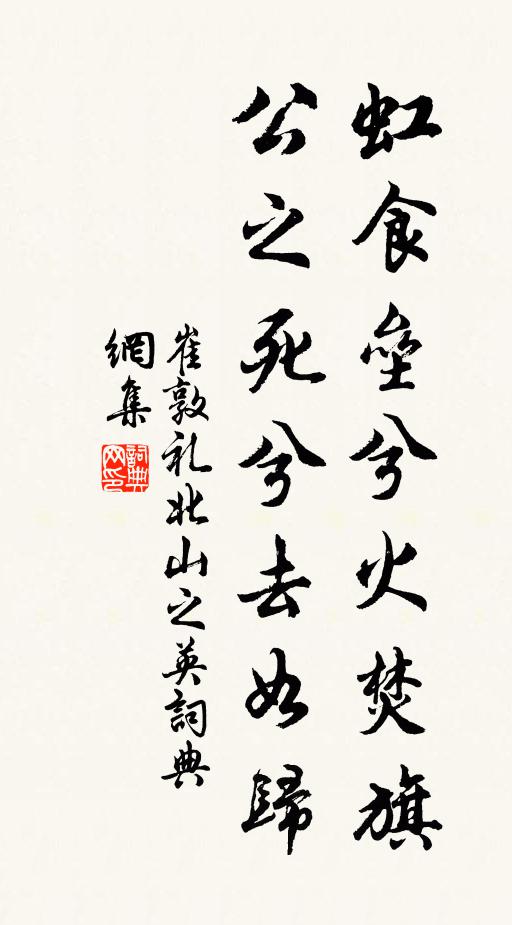 虹食壘兮火焚旗
公之死兮去如歸
崔敦礼北山之英詞典
網集
詞典
网印